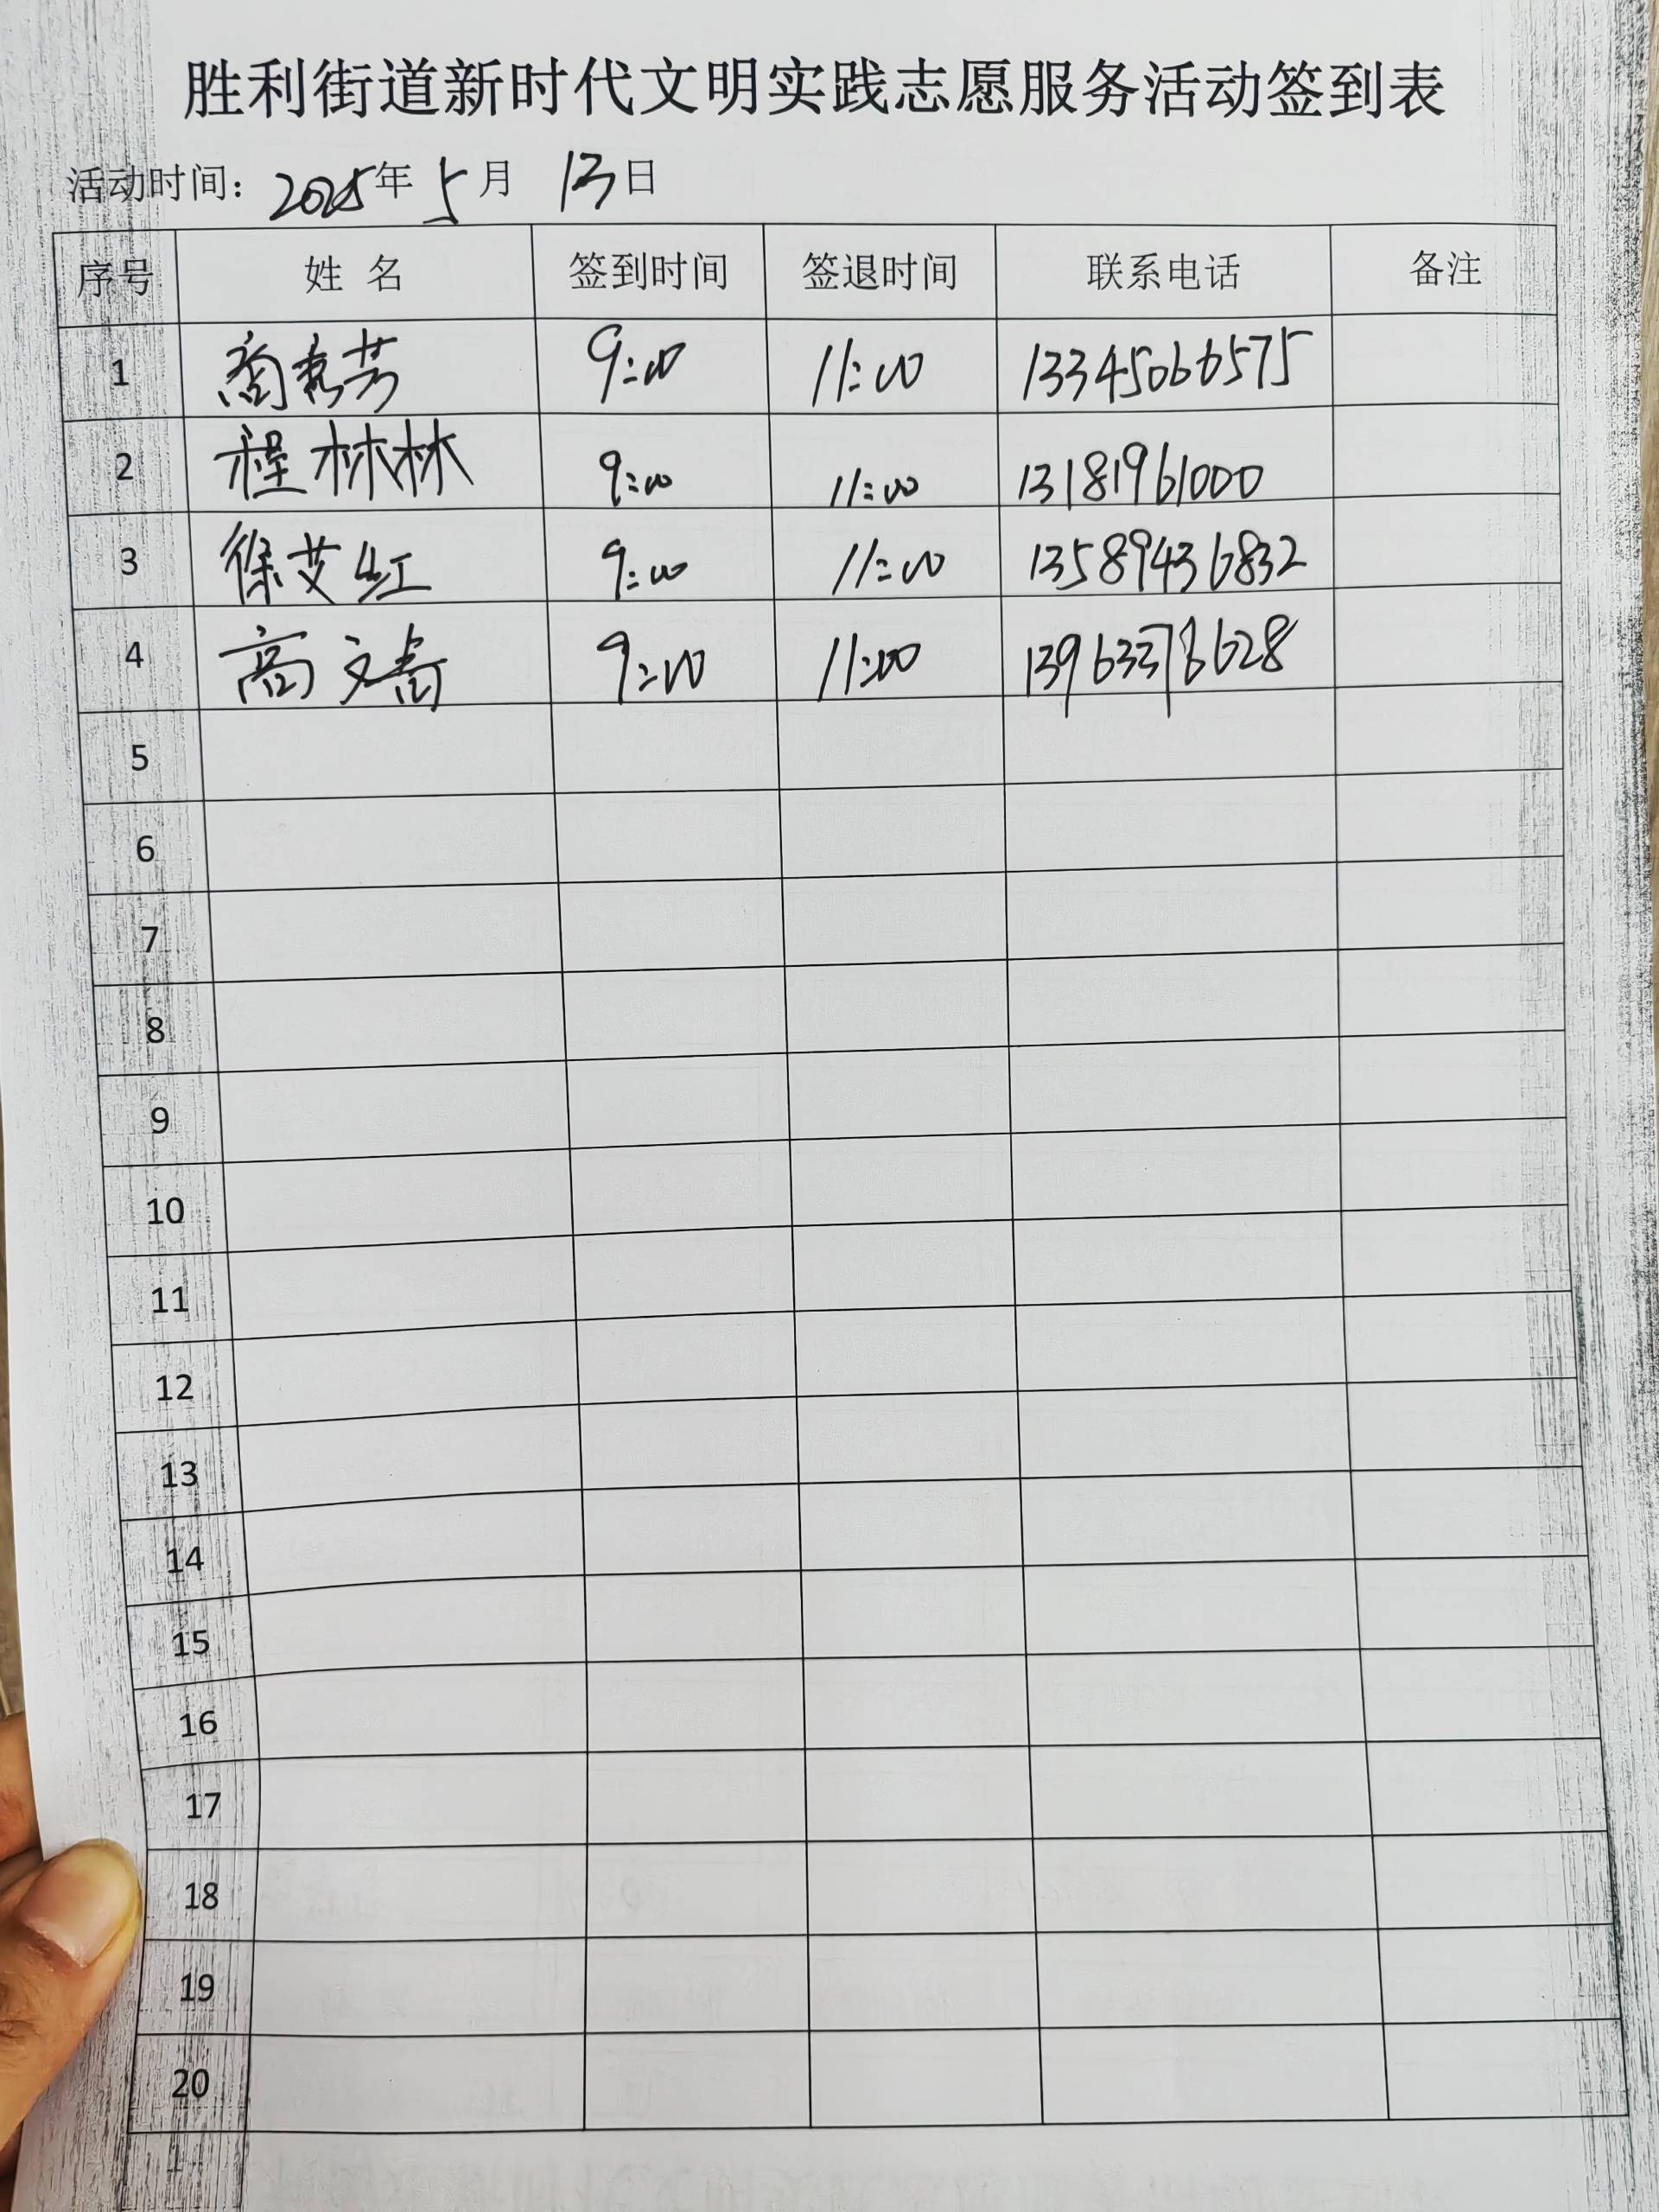 胜利街道新时代文明实践志愿服务活动签到表
活动时间：2025年 5月 13日
序号 姓 名 签到时间 签退时间 联系电话 备注
1 商秀芳 9:00 11:00 13345066575
2 程林林 9:00 11:00 13181961000
3 徐艾红 9:00 11:00 13589436832
4 高文 9:00 11:00 13963378628
5
6
7
8
9
10
11
12
13
14
15
16
17
18
19
20